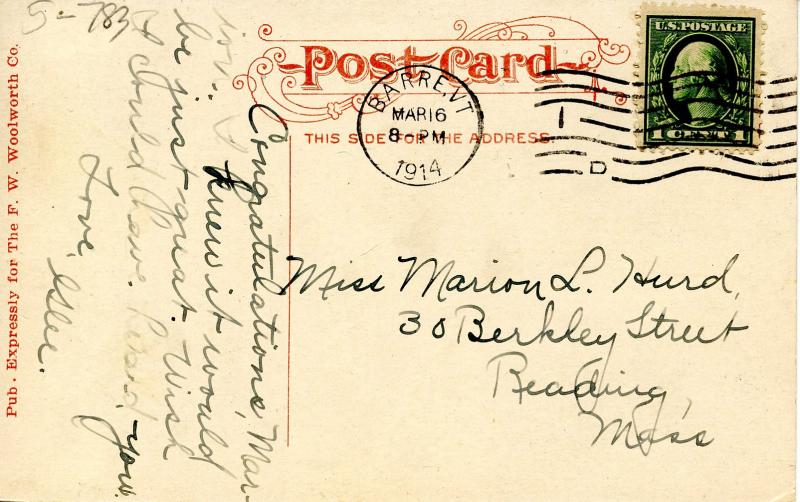 5-783
Post Card
THIS SIDE FOR THE ADDRESS.
BARRE VT
MAR 16
8-PM
1914
U.S. POSTAGE
1 CENT 1
D
Miss Marion L. Hurd,
30 Berkley Street
Reading,
Mass
Congratulations, Mar-
ion. I knew it would
be just great. Wish
I could have heard you.
Love,
Pub. Expressly for The F. W. Woolworth Co.